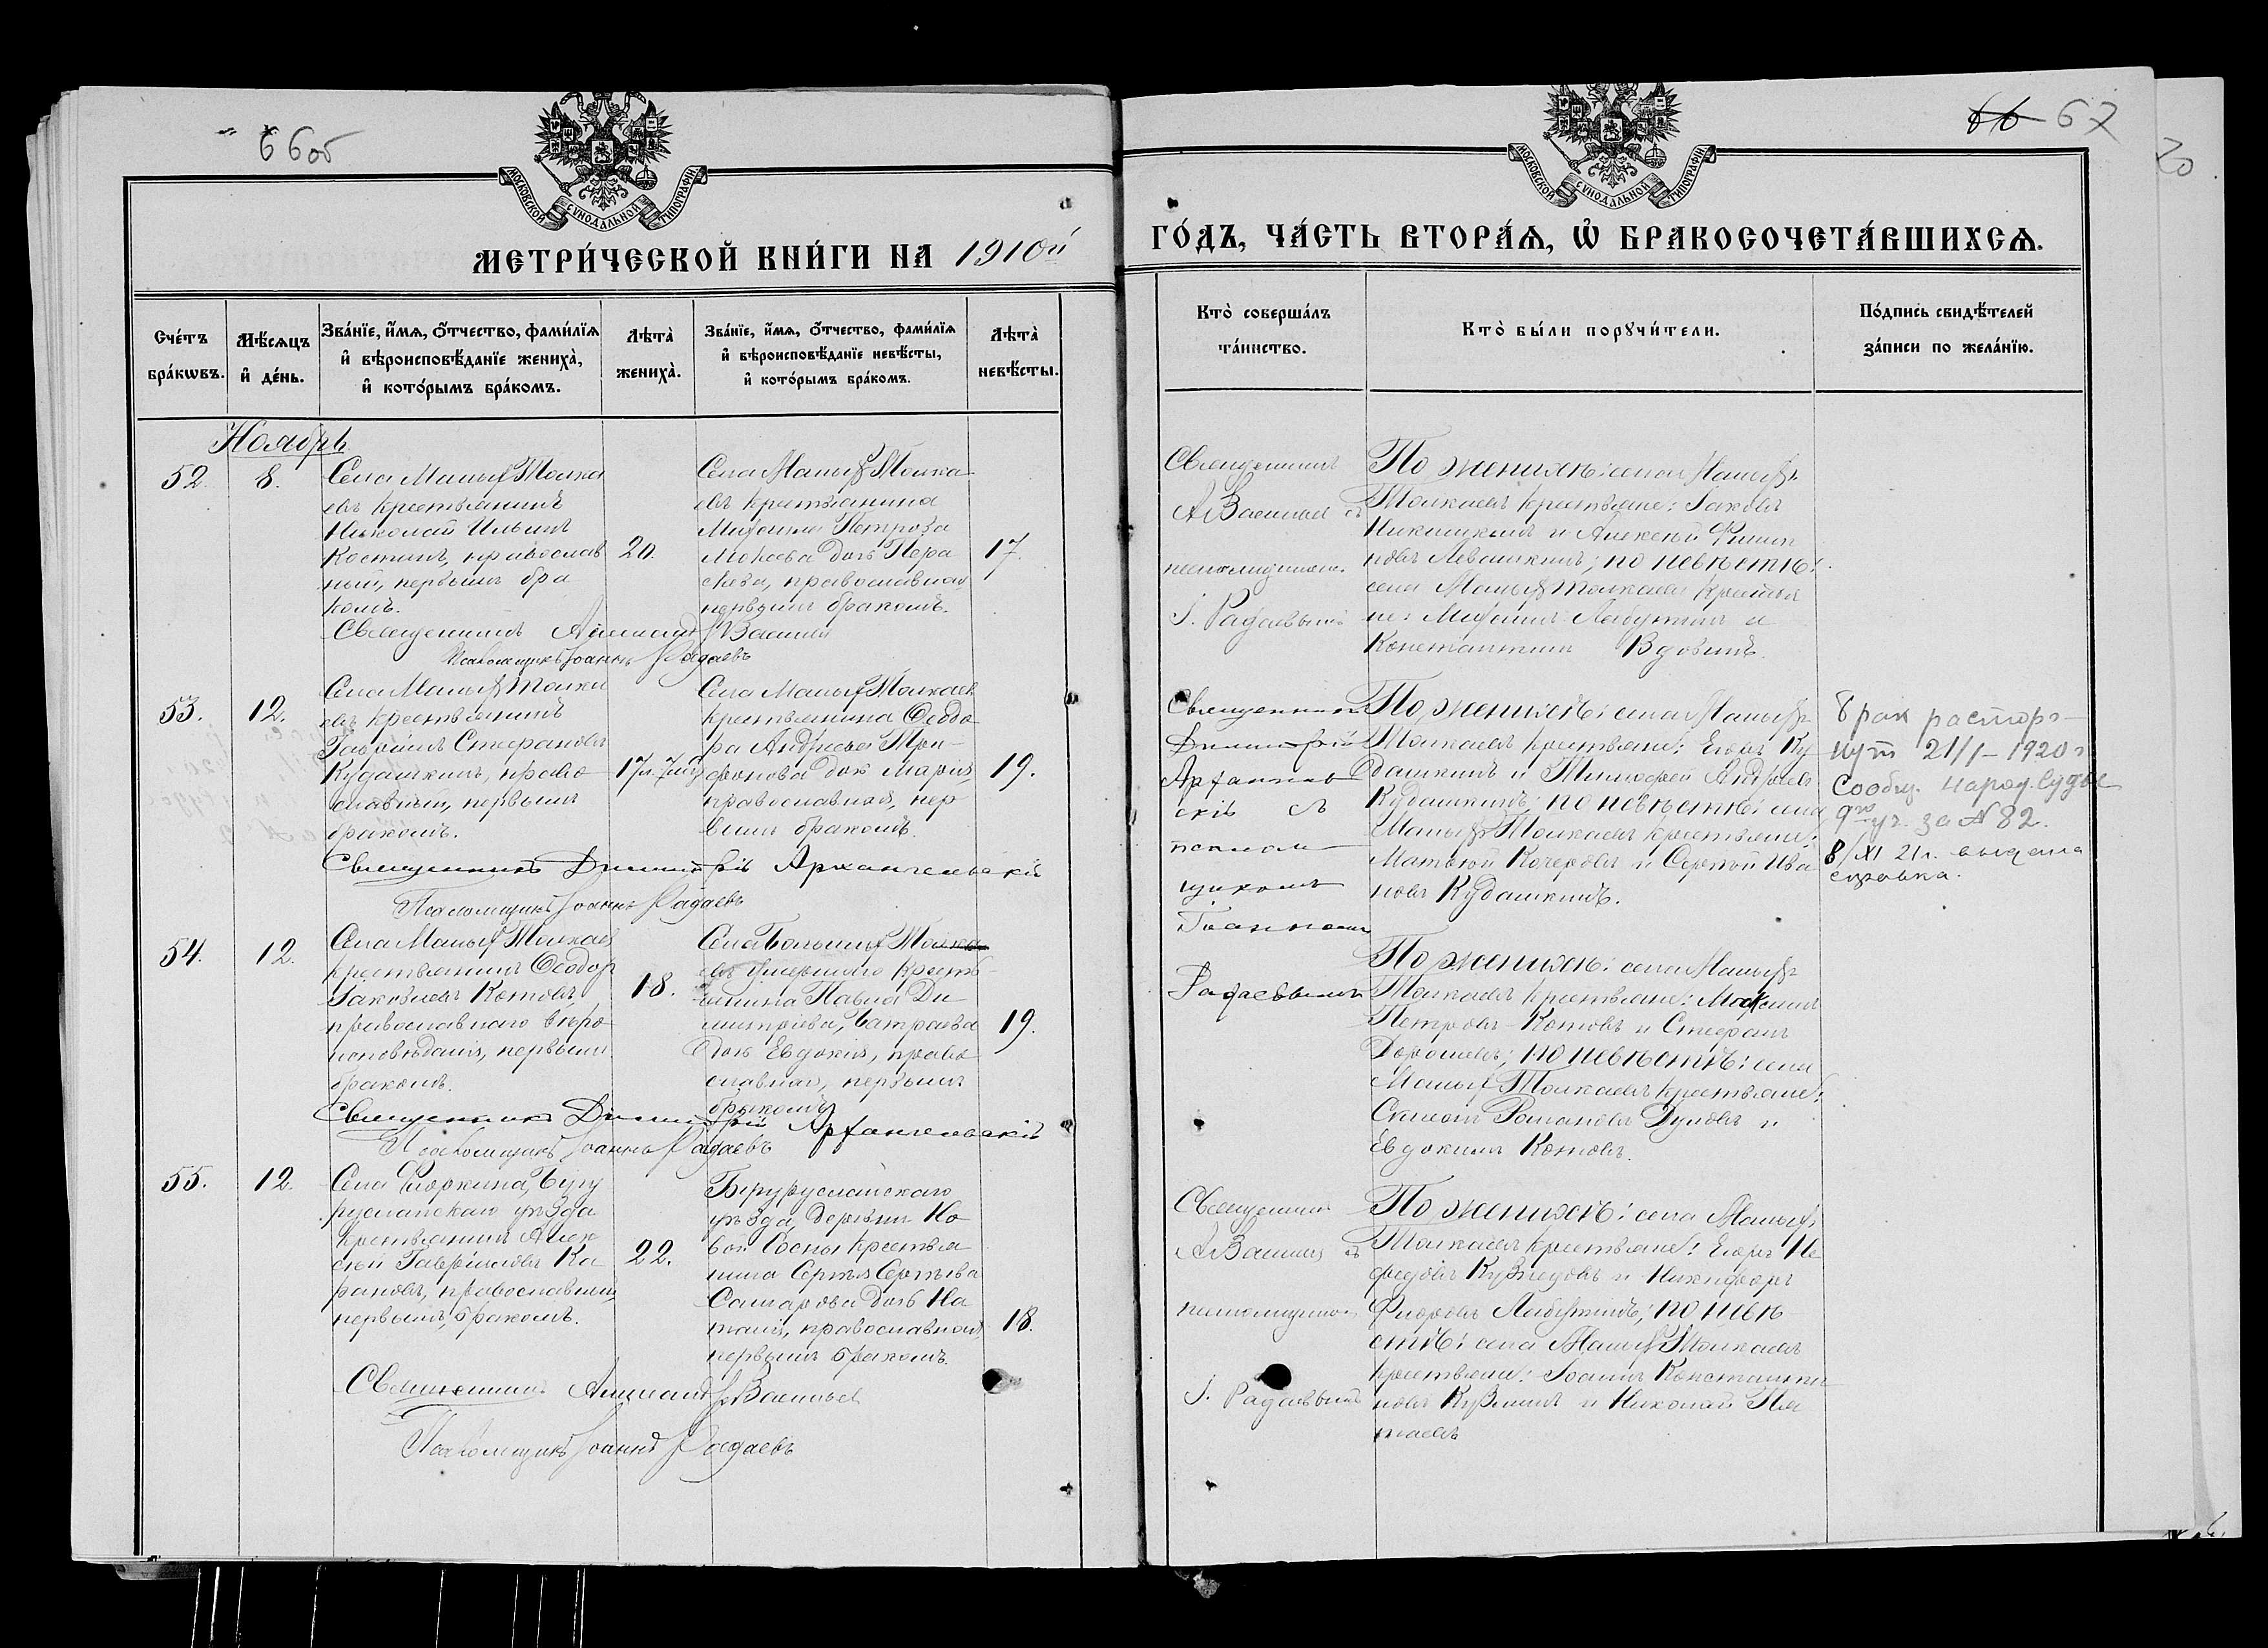 66об
МОСКОВСКОЙ СѴНОДАЛЬНОЙ ТИПОГРАФІИ
МЕТРИ́ЧЕСКОЙ КНИ́ГИ НА 1910й
Сче́тъ бра́кѡвъ.
Мѣ́сяцъ и҆ де́нь.
Зва́нїе, и҆́мѧ, ѻ҆́тчество, фами́лїѧ и҆ вѣроисповѣ́данїе жениха̀, и҆ кото́рымъ бра́комъ.
Лѣта̀ жениха̀.
Зва́нїе, и҆́мѧ, ѻ҆́тчество, фами́лїѧ и҆ вѣроисповѣ́данїе невѣ́сты, и҆ кото́рымъ бра́комъ.
Лѣта̀ невѣ́сты.
Ноябрь
52.
8.
Села Малыхъ Толка
евъ крестьянинъ
Николай Ильинъ
Костинъ, православ
ный, первымъ бра
комъ.
20.
Села Малыхъ Толка
евъ крестьянина
Петрова
дочь Пера
скева, православная,
первымъ бракомъ.
17.
Священникъ Васильев
Псаломщикъ Іоаннъ Радаевъ
53.
12.
Села Малыхъ Толка
евъ крестьянинъ
Гавріилъ Стефановъ
Кудашкинъ, право
славный, первымъ
бракомъ.
17
Села Малыхъ Толкаев
крестьянина Ѳеодо
ра Андреева Три
фонова дочь Марія,
православная, пер
вымъ бракомъ.
19.
Священникъ Димитрій Архангельскій
Псаломщикъ Іоаннъ Радаевъ
54.
12.
Села Малыхъ Толкаев
крестьянинъ Ѳеодоръ
Іаковлевъ Котовъ,
православнаго вѣро
исповѣданія, первымъ
бракомъ.
18.
Села Большихъ Толка
евъ умершаго кресть
янина Павла Ди
митріева Батраева
дочь Евдокія, право
славная, первымъ
бракомъ
19.
Священникъ Димитрій Архангельскій
Псаломщикъ Іоаннъ Радаевъ
55.
12.
Села Кіоркина, Бугу
русланскаго уѣзда
крестьянинъ Алек
сѣй Гавріиловъ Ка
рановъ, православный,
первымъ бракомъ.
22.
Бугурусланскаго
уѣзда, деревни Но
вой Сосны крестья
нина Сергѣя Сергѣева
Самарова дочь На
талія, православная
первымъ бракомъ.
18.
Священникъ Васильев
Псаломщикъ Іоаннъ Радаевъ
66 67
МОСКОВСКОЙ СѴНОДАЛЬНОЙ ТИПОГРАФІИ
ГО́ДЪ, ЧА́СТЬ ВТОРА́Ѧ, Ѡ҆ БРАКОСОЧЕТА́ВШИХСѦ.
Кто̀ соверша́лъ та́инство.
Кто̀ бы́ли порꙋчи́тели.
По́дпись свидѣ́телей за́писи по жела́нїю.
Священникъ
А. Васильев съ
псаломщиком
І. Радаевымъ
По женихѣ: села Малыхъ
Толкаевъ крестьяне: Іаковъ
Никишкинъ и Алексѣй Филип
повъ Левашкинъ; по невѣстѣ:
села Малыхъ Толкаевъ крестья
не: Лабутинъ и
Константинъ Вдовинъ.
Священникъ
Димитрій
Архангель
скій съ
псалом
щикомъ
Іоанномъ
Радаевымъ
По женихѣ: села Малыхъ
Толкаевъ крестьяне: Егоръ Ку
дашкинъ и Тимофей Андреевъ
Кудашкинъ; по невѣстѣ: села
Малыхъ Толкаевъ крестьяне:
Матвѣй Кочеровъ и Сергѣй Ива
новъ Кудашкинъ.
Брак расторг
нут 21/I-1920г
Сообщ. народ. судье
9го уч. за № 82.
8/XI 21г. выдана
справка.
По женихѣ: села Малыхъ
Толкаевъ крестьяне: Максимъ
Петровъ Котовъ и Стефанъ
Дорофеевъ; по невѣстѣ: села
Малыхъ Толкаевъ крестьяне:
Романовъ и
Евдокимъ Котовъ.
Священникъ
А. Васильев съ
псаломщиком
І. Радаевымъ
По женихѣ: села Малыхъ
Толкаевъ крестьяне: Егоръ Не
федовъ Кузнецовъ и Никифоръ
Лабутинъ; по невѣ
стѣ: села Малыхъ Толкаевъ
крестьяне: Іоаннъ Константи
новъ Кузминъ и Николай Пля
таевъ